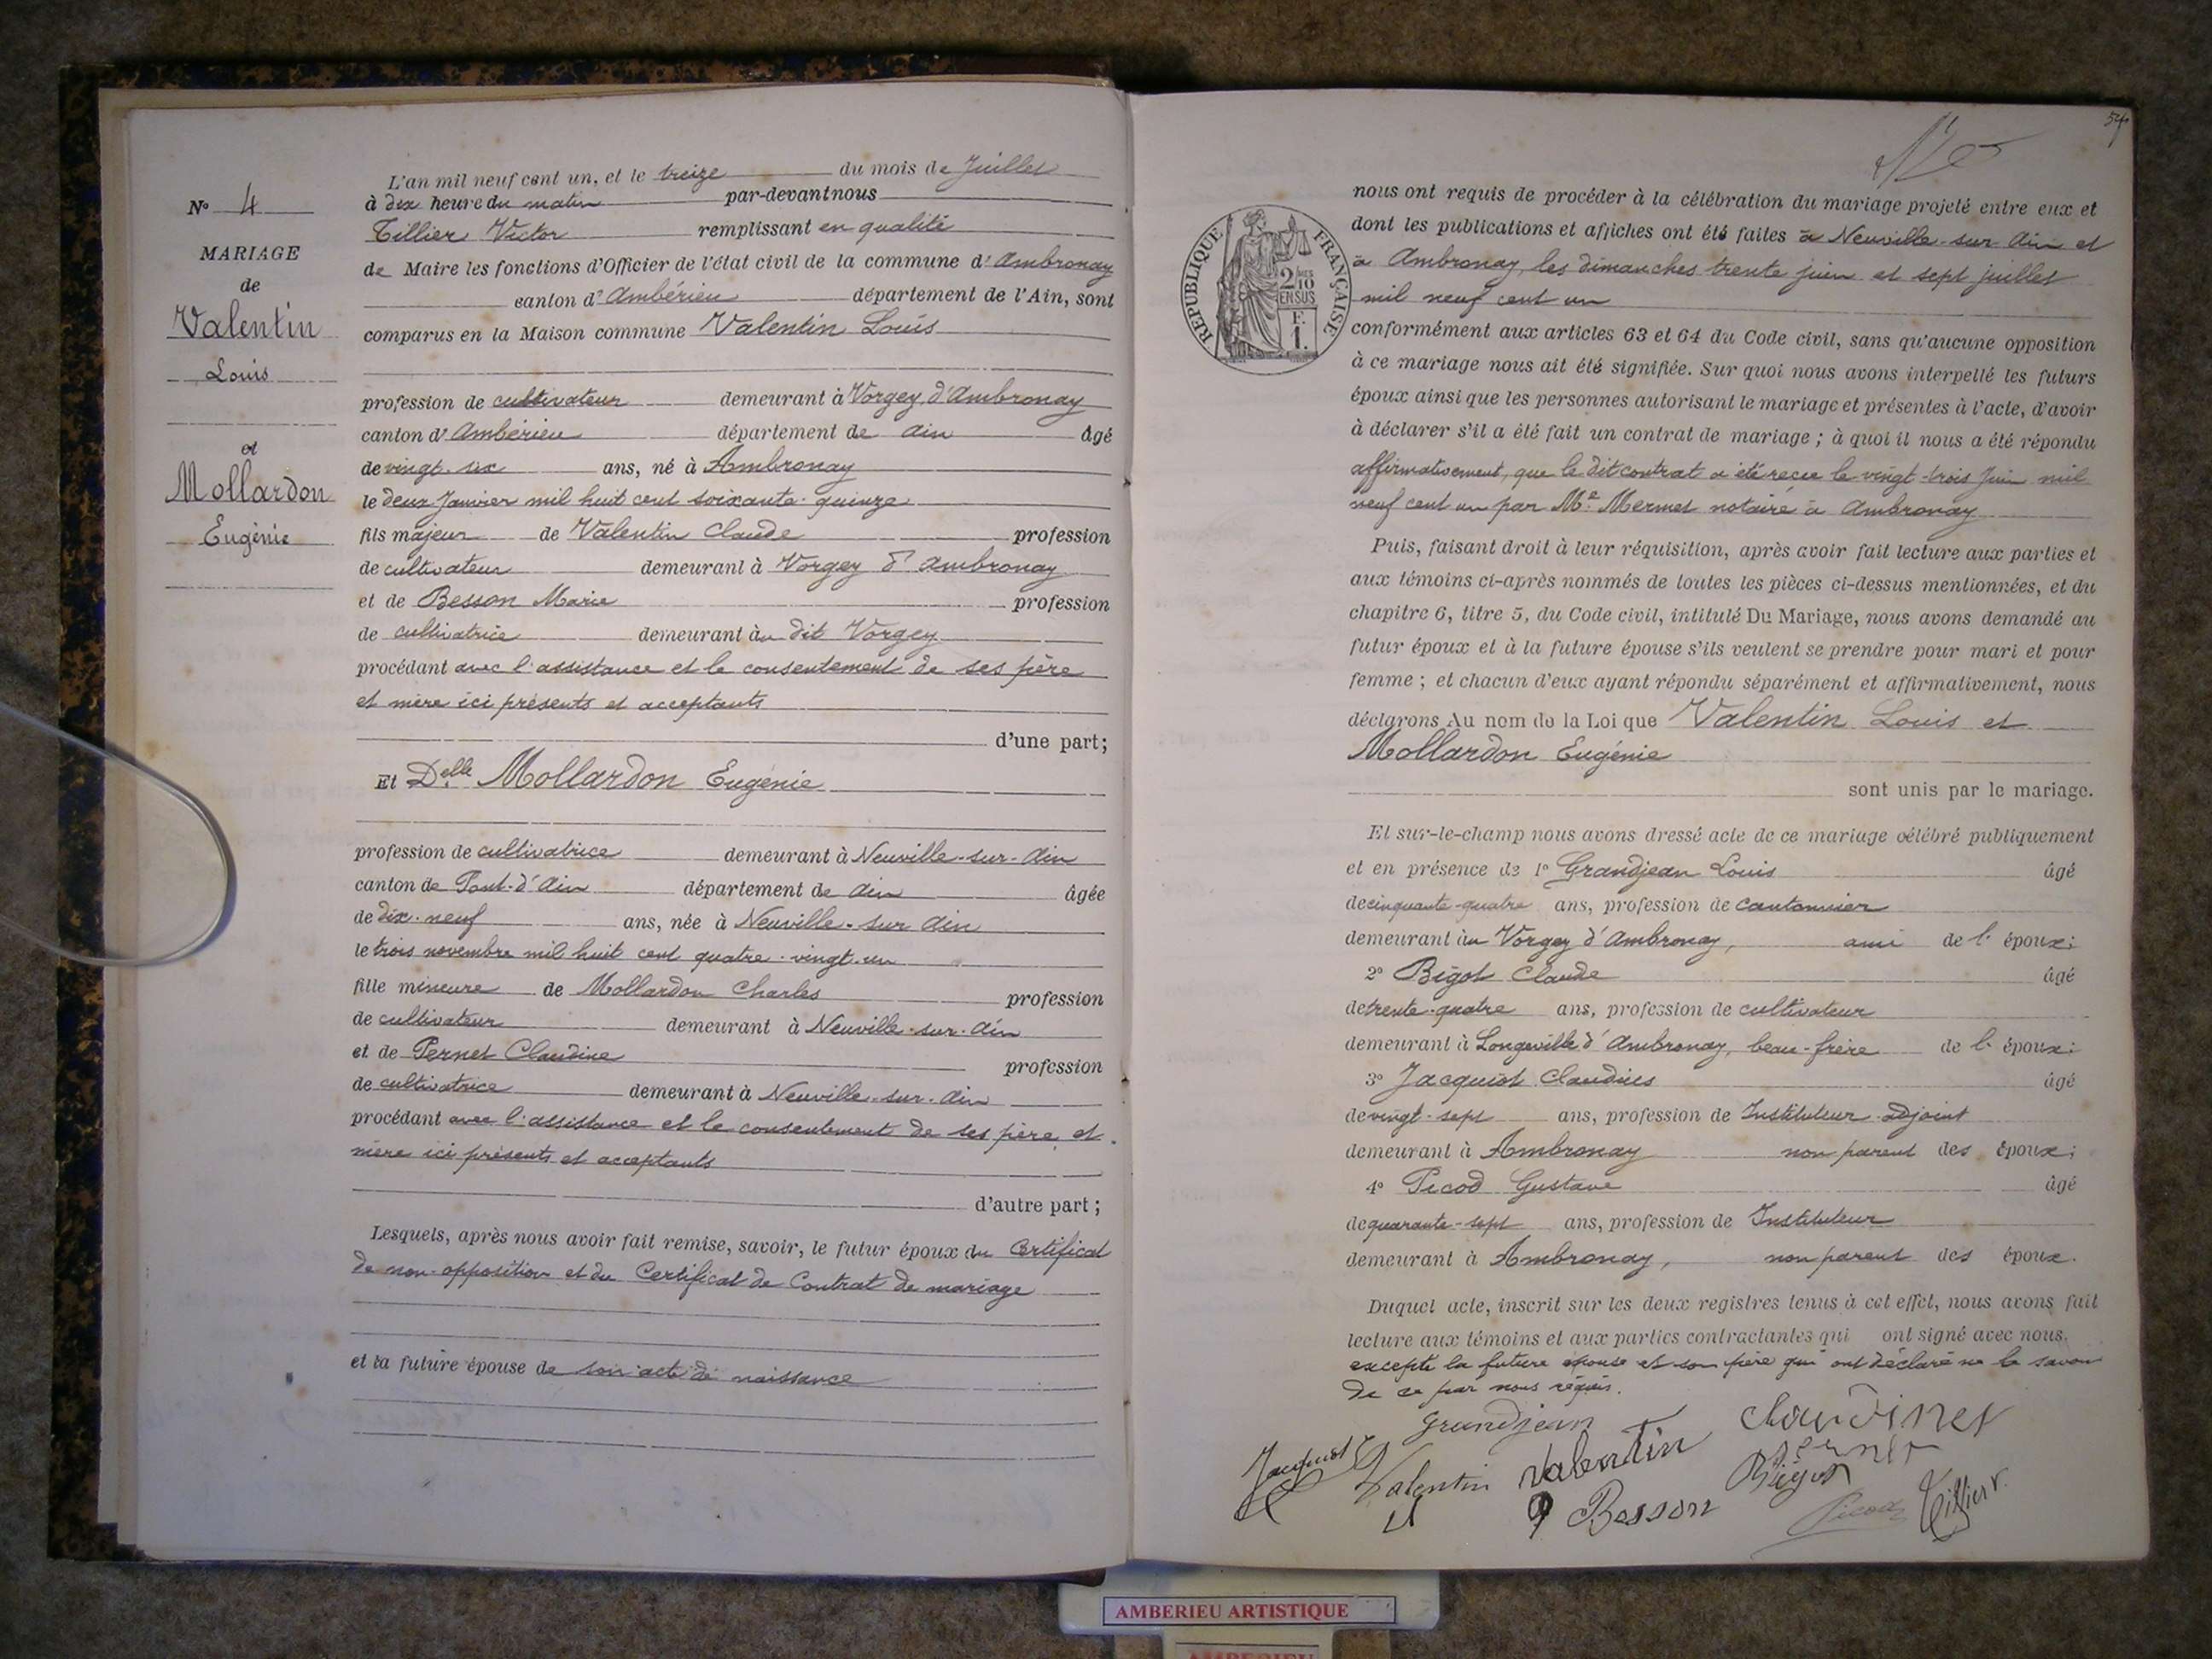 N° 4
MARIAGE
de
Valentin
Louis
et
Mollardon
Eugénie
L'an mil neuf cent un, et le treize du mois de Juillet
à dix heure du matin par-devant nous
Tillier Victor remplissant en qualité
de Maire les fonctions d'Officier de l'état civil de la commune d'Ambronay
canton d'Ambérieu département de l'Ain, sont
comparus en la Maison commune Valentin Louis
profession de cultivateur demeurant à Vorgey d'Ambronay
canton d'Ambérieu département de Ain âgé
de vingt-six ans, né à Ambronay
le deux Janvier mil huit cent soixante-quinze
fils majeur de Valentin Claude profession
de cultivateur demeurant à Vorgey d'Ambronay
et de Besson Marie profession
de cultivatrice demeurant au dit Vorgey
procédant avec l'assistance et le consentement de ses père
et mère ici présents et acceptants
d'une part;
Et Delle Mollardon Eugénie
profession de cultivatrice demeurant à Neuville-sur-Ain
canton de Pont-d'Ain département de Ain âgée
de dix-neuf ans, née à Neuville-sur-Ain
le trois novembre mil huit cent quatre-vingt-un
fille mineure de Mollardon Charles profession
de cultivateur demeurant à Neuville-sur-Ain
et de Pernet Claudine profession
de cultivatrice demeurant à Neuville-sur-Ain
procédant avec l'assistance et le consentement de ses père et
mère ici présents et acceptants
d'autre part;
Lesquels, après nous avoir fait remise, savoir, le futur époux du Certificat
de non-opposition et du Certificat de Contrat de mariage
et la future épouse de son acte de naissance
54
RÉPUBLIQUE FRANÇAISE
2/10 EN SUS
F. 1.
nous ont requis de procéder à la célébration du mariage projeté entre eux et
dont les publications et affiches ont été faites à Neuville-sur-Ain et
à Ambronay, les dimanches trente juin et sept juillet
mil neuf cent un
conformément aux articles 63 et 64 du Code civil, sans qu'aucune opposition
à ce mariage nous ait été signifiée. Sur quoi nous avons interpellé les futurs
époux ainsi que les personnes autorisant le mariage et présentes à l'acte, d'avoir
à déclarer s'il a été fait un contrat de mariage; à quoi il nous a été répondu
affirmativement, que le dit contrat a été reçu le vingt-trois Juin mil
neuf cent un par Me Mermet notaire à Ambronay
Puis, faisant droit à leur réquisition, après avoir fait lecture aux parties et
aux témoins ci-après nommés de toutes les pièces ci-dessus mentionnées, et du
chapitre 6, titre 5, du Code civil, intitulé Du Mariage, nous avons demandé au
futur époux et à la future épouse s'ils veulent se prendre pour mari et pour
femme; et chacun d'eux ayant répondu séparément et affirmativement, nous
déclarons Au nom de la Loi que Valentin Louis et
Mollardon Eugénie
sont unis par le mariage.
Et sur-le-champ nous avons dressé acte de ce mariage célébré publiquement
et en présence de 1° Grandjean Louis âgé
de cinquante-quatre ans, profession de cantonnier
demeurant au Vorgey d'Ambronay, ami de l'époux;
2° Bigot Claude âgé
de trente-quatre ans, profession de cultivateur
demeurant à Longeville d'Ambronay, beau-frère de l'époux;
3° Jacquiot Claudius âgé
de vingt-sept ans, profession de Instituteur adjoint
demeurant à Ambronay non parent des époux;
4° Picod Gustave âgé
de quarante-sept ans, profession de Instituteur
demeurant à Ambronay, non parent des époux.
Duquel acte, inscrit sur les deux registres tenus à cet effet, nous avons fait
lecture aux témoins et aux parties contractantes qui ont signé avec nous.
excepté la future épouse et son père qui ont déclaré ne le savoir
de ce par nous requis.
Grandjean
Claudine
Pernet
Jacquiot
Valentin
Valentin
Bigot
Besson
Picod
Tillier V.
AMBERIEU ARTISTIQUE
AMBERIEU